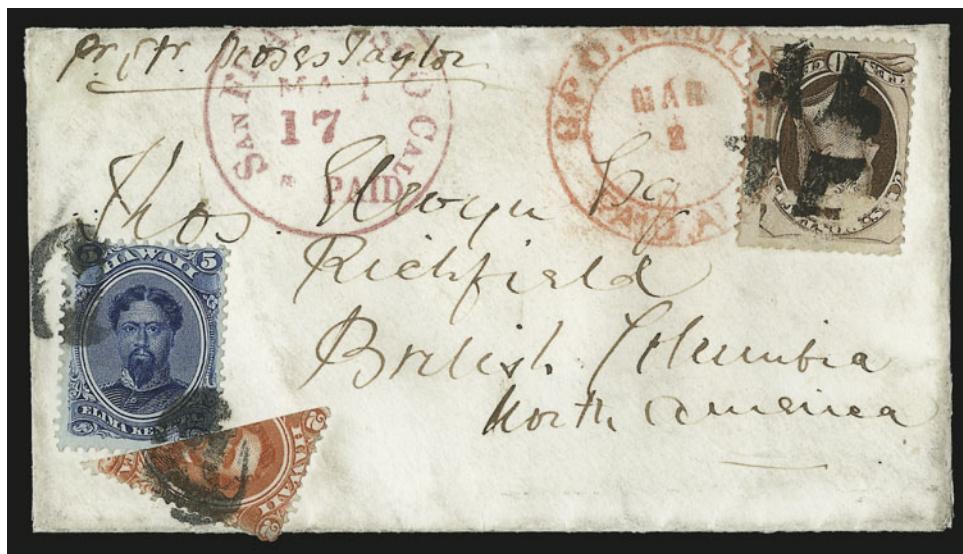 pr. Str. Moses Taylor
SAN FRANCISCO CAL.
MAR
17
PAID
G.P.O. HONOLULU
MAR
2
HAWAII
Thos. Elwyn Esq
Richfield
British Columbia
North America
5 5
HAWAII
ELIMA KEN
2
HAWAII
2